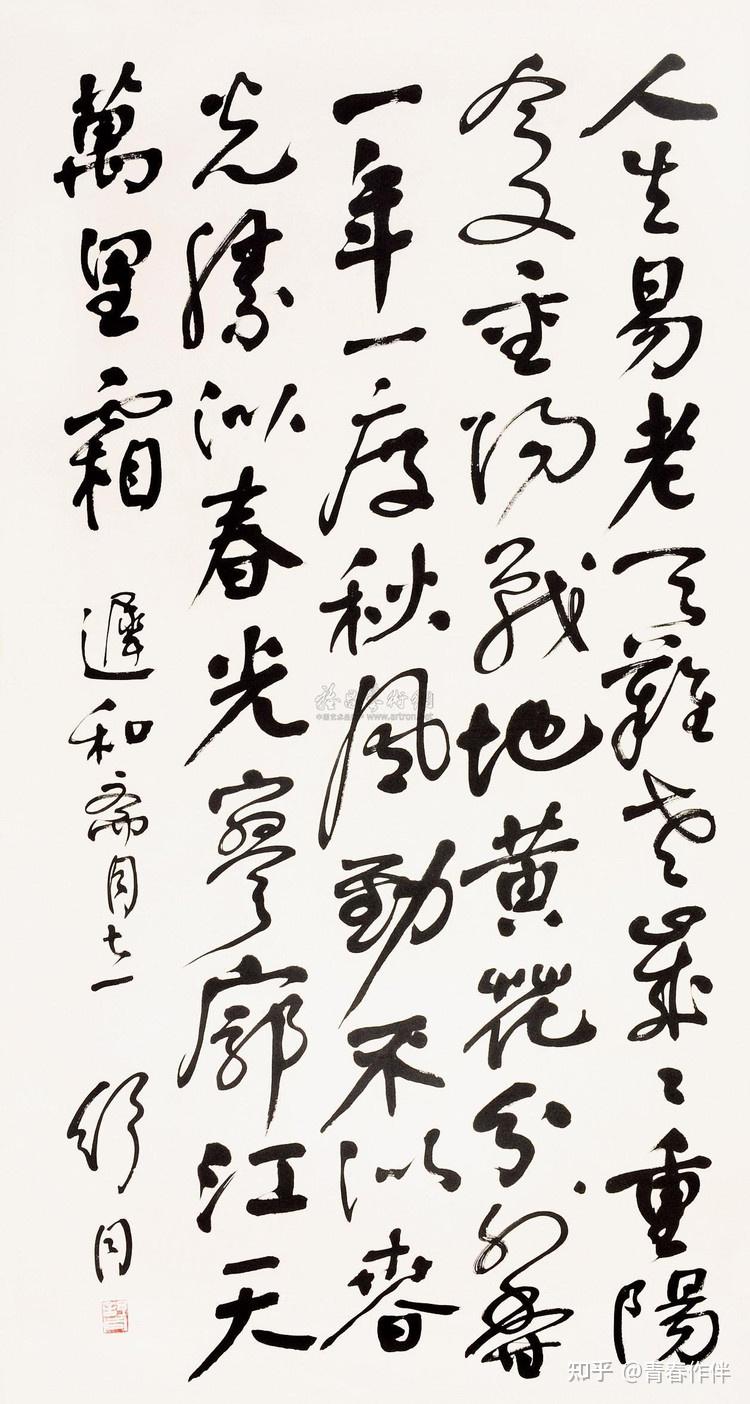 人生易老天難老歲〻重陽
今又重陽戰地黃花分外香
一年一度秋風勁不似春
光勝似春光寥廓江天
萬里霜 遲和斋同志 舒同
雅昌藝術網
www.artron.net
知乎 @青春作伴